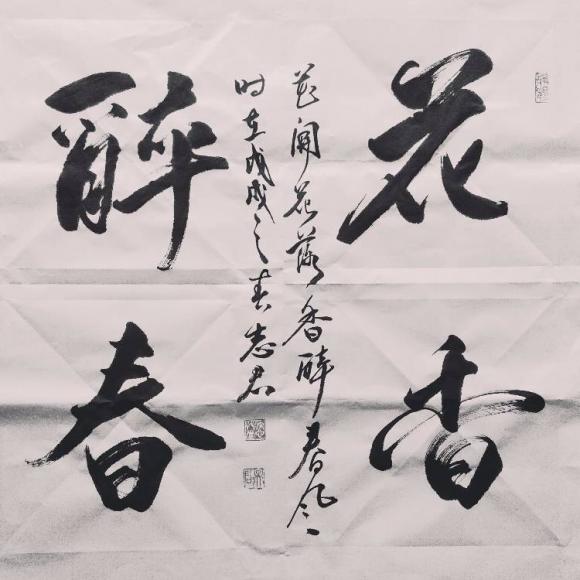 花香
醉春
花开花落香醉春风
时在戊戌之春志君